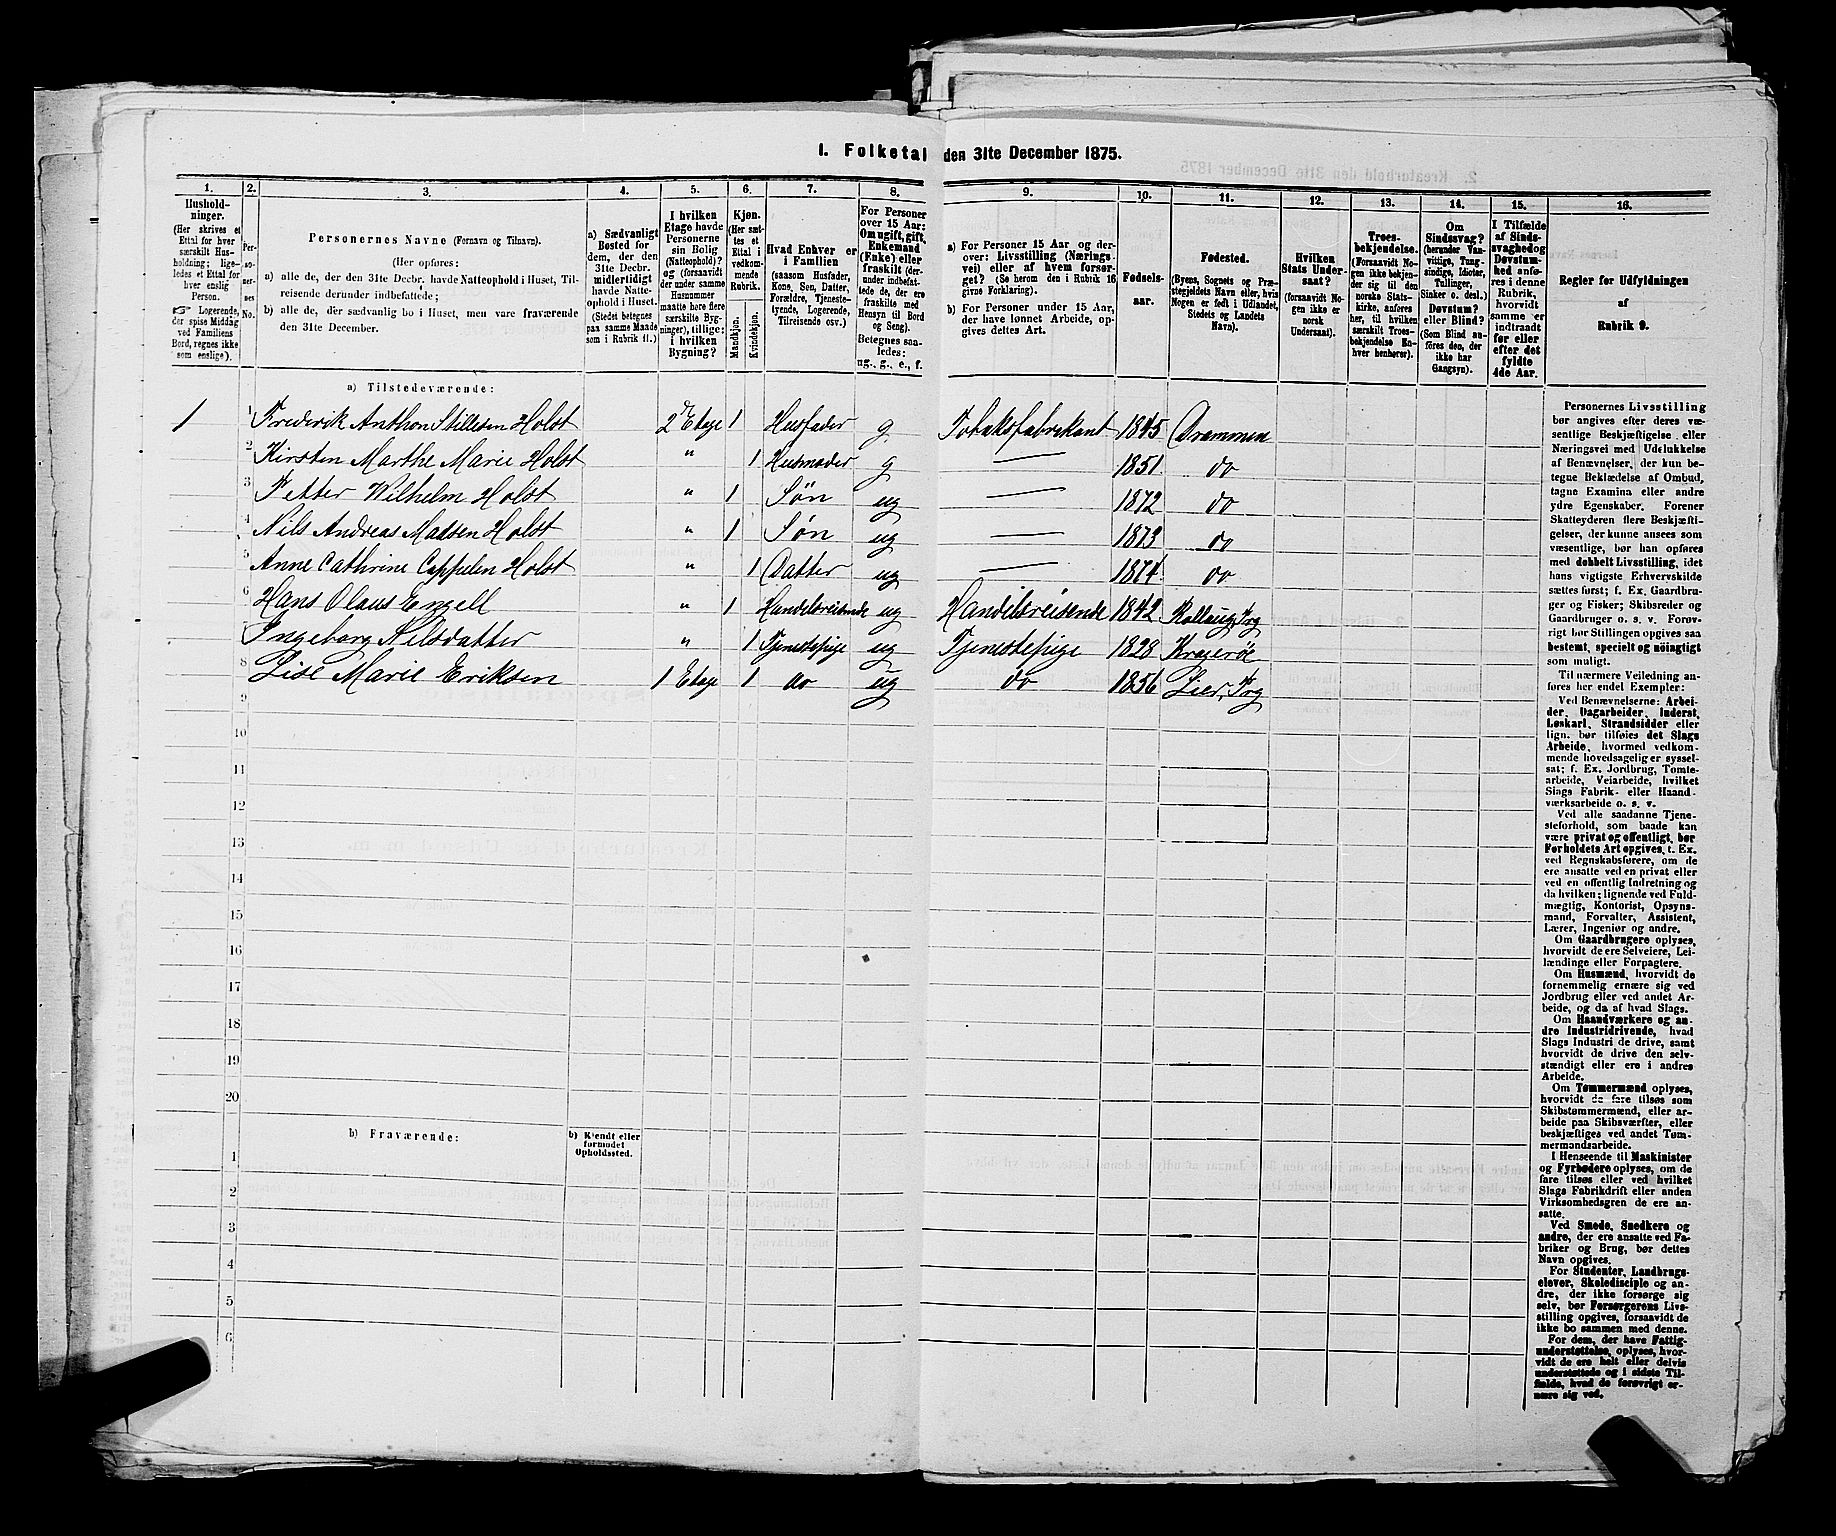 1. Folketal den 31te December 1875.
1. 2. 3. 4. 5. 6. 7. 8. 9. 10. 11. 12. 13. 14. 15. 16.
Hushold-
ninger.
(Her skrives et
Ettal for hver
særskilt Hus-
holdning; lige-
ledes et Ettal for
hver enslig
Person.
☞ Logerende,
der spise Middag
ved Familiens
Bord, regnes ikke
som enslige).
Per-
so-
ner-
nes
No.
Personernes Navne (Fornavn og Tilnavn).
(Her opføres:
a) alle de, der den 31te Decbr. havde Natteophold i Huset, Til-
reisende derunder indbefattede;
b) alle de, der sædvanlig bo i Huset, men vare fraværende
den 31te December.
a) Sædvanligt
Bosted for
dem, der den
31te Decbr.
midlertidigt
havde Natte-
ophold i Huset.
(Stedet betegnes
paa samme Maade
som i Rubrik 11.)
I hvilken
Etage havde
Personerne
sin Bolig
(Natteophold)?
og (forsaavidt
der under samme
Husnummer
maatte høre flere
særskilte Byg-
ninger), tillige:
i hvilken
Bygning?
Kjøn.
(Her sæt-
tes et
Ettal i
vedkom-
mende
Rubrik.
Mandkjøn.
Kvindekjøn.
Hvad Enhver er
i Familien
(saasom Husfader,
Kone, Søn, Datter,
Forældre, Tjeneste-
tyende, Logerende,
Tilreisende osv.)
For Personer
over 15 Aar:
Om ugift, gift,
Enkemand
(Enke) eller
fraskilt (der-
under indbefat-
tede de, der ere
fraskilte med
Hensyn til Bord
og Seng).
Betegnes saa-
ledes:
ug., g., e., f.
a) For Personer 15 Aar og der-
over: Livsstilling (Nærings-
vei) eller af hvem forsør-
get? (Se herom den i Rubrik 16
givne Forklaring).
b) For Personer under 15 Aar,
der have lønnet Arbeide, op-
gives dettes Art.
Fødsels-
aar.
Fødested.
(Byens, Sognets og Præ-
stegjeldets Navn eller, hvis
Nogen er født i Udlandet,
Stedets og Landets
Navn).
Hvilken
Stats Under-
saat?
(forsaavidt No-
gen ikke er
norsk
Undersaat).
Troes-
bekjendelse.
(Forsaavidt No-
gen ikke bekjen-
der sig til den
norske Stats-
kirke, anføres
her, til hvilken
særskilt Troes-
bekjendelse En-
hver henhører).
Om
Sindssvag?
(herunder Van-
vittige, Tung-
sindige, Idioter,
Tullinger,
Sinker o. desl.)
Døvstum?
eller Blind?
(Som Blind an-
føres den, der
ikke har
Gangsyn).
I Tilfælde
af Sinds-
svaghed og
Døvstum-
hed anfø-
res i denne
Rubrik,
hvorvidt
samme er
indtraadt
før eller
efter det
fyldte
4de Aar.
Regler for Udfyldningen
af
Rubrik 9.
a) Tilstedeværende:
1 1 Frederik Anthon Stillesen Holst 2den Etage 1 Husfader g Tobaksfabrikant 1845 Drammen
2 Kirsten Marthe Marie Holst " 1 Husmoder g — 1851 do
3 Petter Wilhelm Holst " 1 Søn ug — 1872 do
4 Nils Andreas Madsen Holst " 1 Søn ug — 1873 do
5 Anne Cathrine Cappelen Holst " 1 Datter ug — 1874 do
6 Hans Olaus Engell " 1 Handelsreisende ug Handelsreisende 1842 Prg
7 Ingeborg Nilsdatter " 1 Tjenestepige ug Tjenestepige 1828 Kragerøe
8 Lise Marie Eriksen 1 Etage 1 do ug do 1856 Lier, Prg
9
10
11
12
13
14
15
16
17
18
19
20
b) Fraværende:
b) Kjendt eller
formodet
Opholdssted.
1
2
3
4
5
6
Personernes Livsstilling
bør angives efter deres væ-
sentlige Beskjæftigelse eller
Næringsvei med Udelukkelse
af Benævnelser, der kun be-
tegne Beklædelse af Ombud,
tagne Examina eller andre
ydre Egenskaber. Forener
Skatteyderen flere Beskjæfti-
gelser, der kunne ansees som
væsentlige, bør han opføres
med dobbelt Livsstilling, idet
hans vigtigste Erhvervskilde
sættes først; f. Ex. Gaardbru-
ger og Fisker; Skibsreder og
Gaardbruger o. s. v. Forøv-
rigt bør Stillingen opgives saa
bestemt, specielt og nöiagtigt
som muligt.
Til nærmere Veiledning an-
føres her endel Exempler:
Ved Benævnelserne: Arbei-
der, Dagarbeider, Inderst,
Løskarl, Strandsidder eller
lign. bør tilføies det Slags
Arbeide, hvormed vedkom-
mende hovedsagelig er syssel-
sat; f. Ex. Jordbrug, Tomte-
arbeide, Veiarbeide, hvilket
Slags Fabrik- eller Haand-
værksarbeide o. s. v.
Ved alle saadanne Tjene-
steforhold, som baade kan
være privat og offentligt, bør
Forholdets Art opgives, t. Ex.
ved Regnskabsførere, om de
ere ansatte ved en privat eller
ved en offentlig Indretning og
da hvilken; lignende ved Fuld-
mægtig, Kontorist, Opsyns-
mand, Forvalter, Assistent,
Lærer, Ingeniør og andre.
Om Gaardbrugere oplyses,
hvorvidt de ere Selveiere, Lei-
lændinge eller Forpagtere.
Om Husmænd, hvorvidt de
fornemmelig ernære sig ved
Jordbrug eller ved andet Ar-
beide, og da af hvad Slags.
Om Haandværkere og an-
dre Industridrivende, hvad
Slags Industri de drive, samt
hvorvidt de drive den selv-
stændigt eller ere i andres
Arbeide.
Om Tømmermænd oplyses,
hvorvidt de fare tilsøs som
Skibstømmermænd, eller ar-
beide paa Skibsværfter, eller
beskjæftiges ved andet Tøm-
mermandsarbeide.
I Henseende til Maskinister
og Fyrbødere oplyses, om de
fare tilsøs eller ved hvilket
Slags Fabrikdrift eller anden
Virksomhedsgren de ere an-
satte.
Ved Smede, Snedkere og
andre, der ere ansatte ved Fa-
briker og Brug, bør dettes
Navn opgives.
For Studenter, Landbrugs-
elever, Skoledisciple og an-
dre, der ikke forsørge sig
selv, bør Forsørgerens Livs-
stilling opgives, forsaavidt de
ikke bo sammen med denne.
For dem, der have Fattig-
understøttelse, oplyses, hvor-
vidt de ere helt eller delvis
understøttede og i sidste Til-
fælde, hvad de forøvrigt er-
nære sig ved.